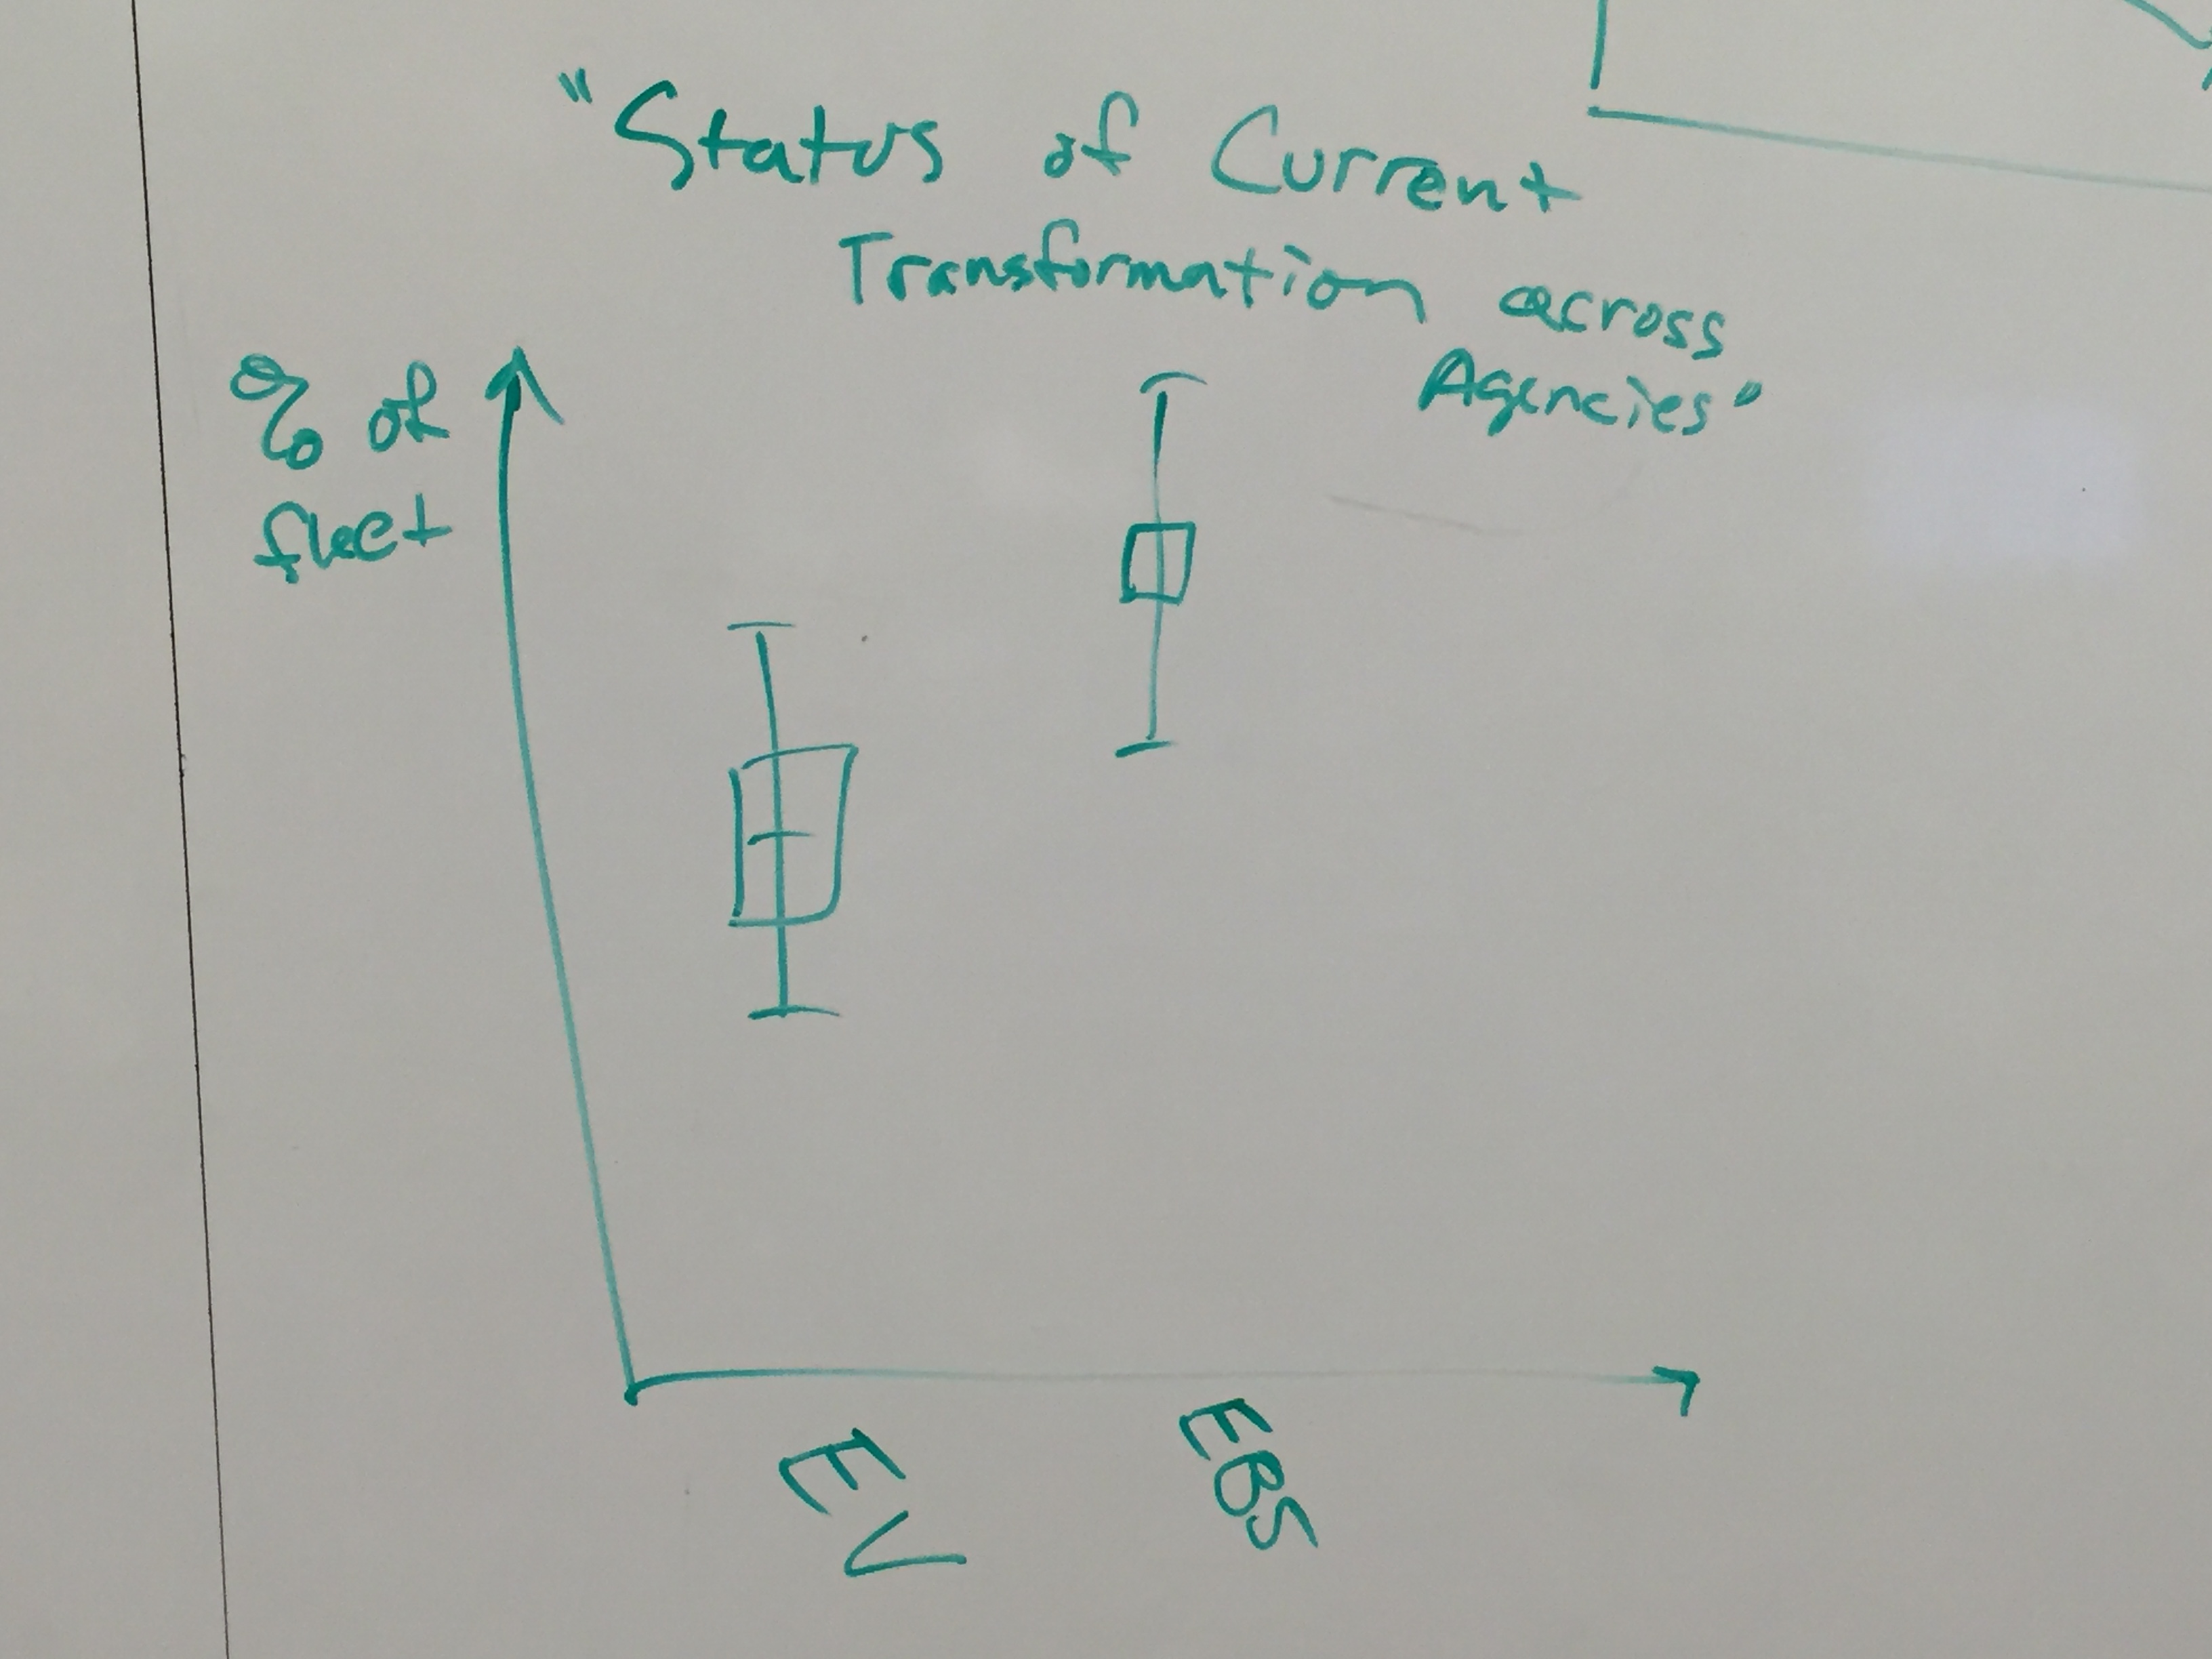 "Status of Current
Transformation across
Agencies"
% of
fleet
EV
EBS